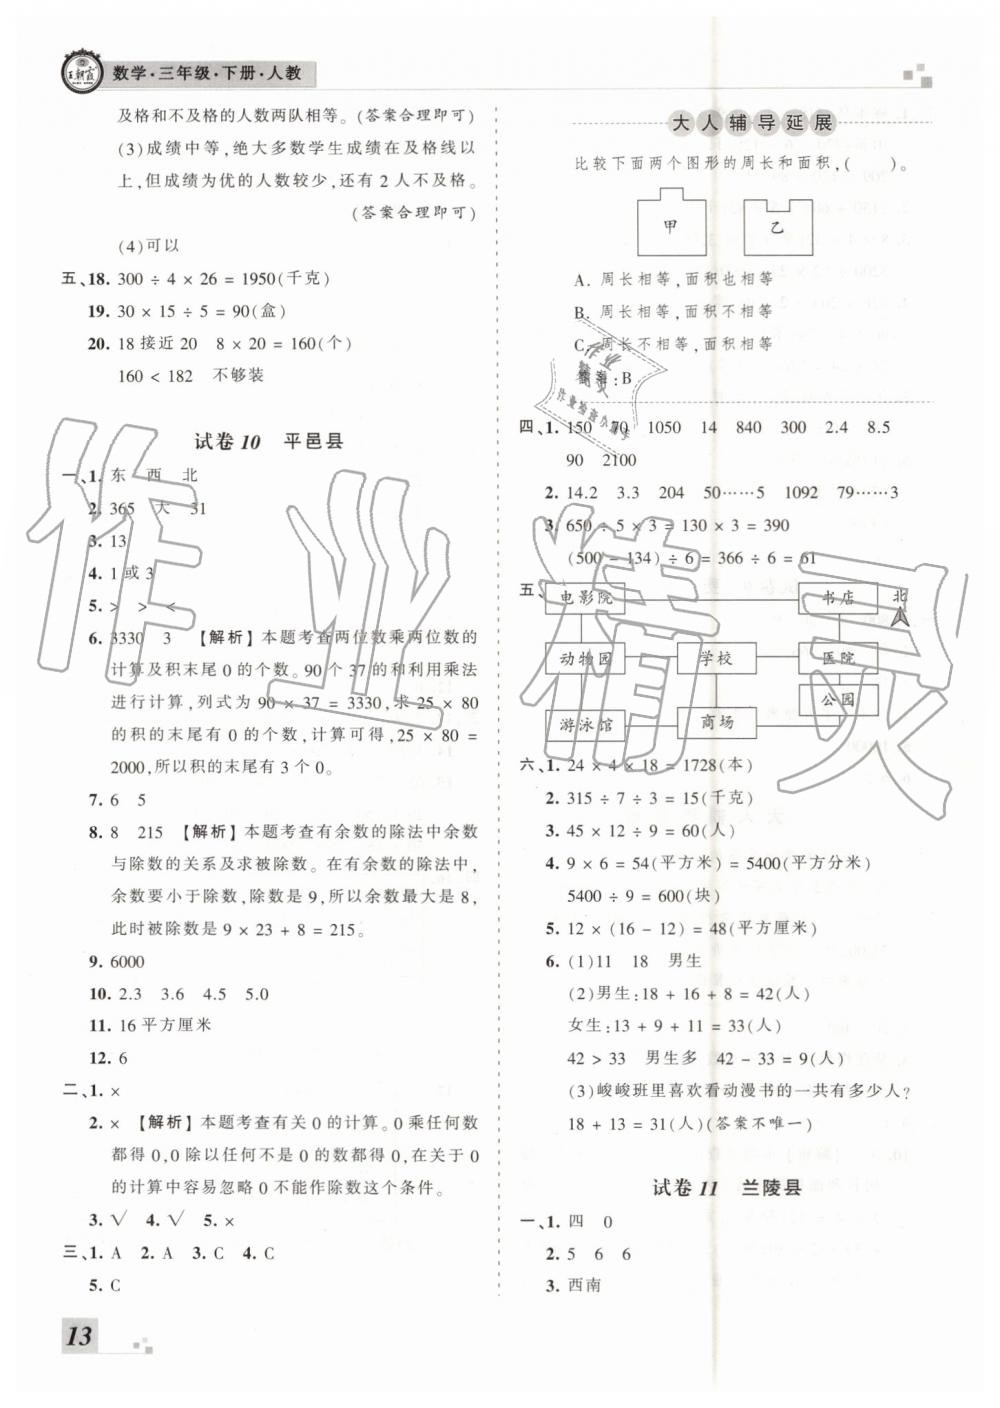 王朝霞
数学·三年级·下册·人教
及格和不及格的人数两队相等。(答案合理即可)
(3)成绩中等,绝大多数学生成绩在及格线以
上,但成绩为优的人数较少,还有 2 人不及格。
(答案合理即可)
(4)可以
五、18. 300 ÷ 4 × 26 = 1950(千克)
19. 30 × 15 ÷ 5 = 90(盒)
20. 18 接近 20 8 × 20 = 160(个)
160 < 182 不够装
试卷 10 平邑县
一、1. 东 西 北
2. 365 大 31
3. 13
4. 1 或 3
5. > > <
6. 3330 3 【解析】本题考查两位数乘两位数的
计算及积末尾 0 的个数。90 个 37 的和利用乘法
进行计算,列式为 90 × 37 = 3330,求 25 × 80
的积的末尾有 0 的个数,计算可得,25 × 80 =
2000,所以积的末尾有 3 个 0。
7. 6 5
8. 8 215 【解析】本题考查有余数的除法中余数
与除数的关系及求被除数。在有余数的除法中,
余数要小于除数,除数是 9,所以余数最大是 8,
此时被除数是 9 × 23 + 8 = 215。
9. 6000
10. 2.3 3.6 4.5 5.0
11. 16 平方厘米
12. 6
二、1. ×
2. × 【解析】本题考查有关 0 的计算。0 乘任何数
都得 0,0 除以任何不是 0 的数都得 0,在关于 0
的计算中容易忽略 0 不能作除数这个条件。
3. √ 4. √ 5. ×
三、1. A 2. A 3. C 4. C
5. C
13
大人辅导延展
比较下面两个图形的周长和面积,( )。
甲 乙
A. 周长相等,面积也相等
B. 周长相等,面积不相等
C. 周长不相等,面积相等
答案:B
四、1. 150 70 1050 14 840 300 2.4 8.5
90 2100
2. 14.2 3.3 204 50……5 1092 79……3
3. 650 ÷ 5 × 3 = 130 × 3 = 390
(500 - 134) ÷ 6 = 366 ÷ 6 = 61
五、
电影院 书店 北
动物园 学校 医院
公园
游泳馆 商场
六、1. 24 × 4 × 18 = 1728(本)
2. 315 ÷ 7 ÷ 3 = 15(千克)
3. 45 × 12 ÷ 9 = 60(人)
4. 9 × 6 = 54(平方米) = 5400(平方分米)
5400 ÷ 9 = 600(块)
5. 12 × (16 - 12) = 48(平方厘米)
6. (1)11 18 男生
(2)男生:18 + 16 + 8 = 42(人)
女生:13 + 9 + 11 = 33(人)
42 > 33 男生多 42 - 33 = 9(人)
(3)峻峻班里喜欢看动漫书的一共有多少人?
18 + 13 = 31(人)(答案不唯一)
试卷 11 兰陵县
一、1. 四 0
2. 5 6 6
3. 西南
作业精灵